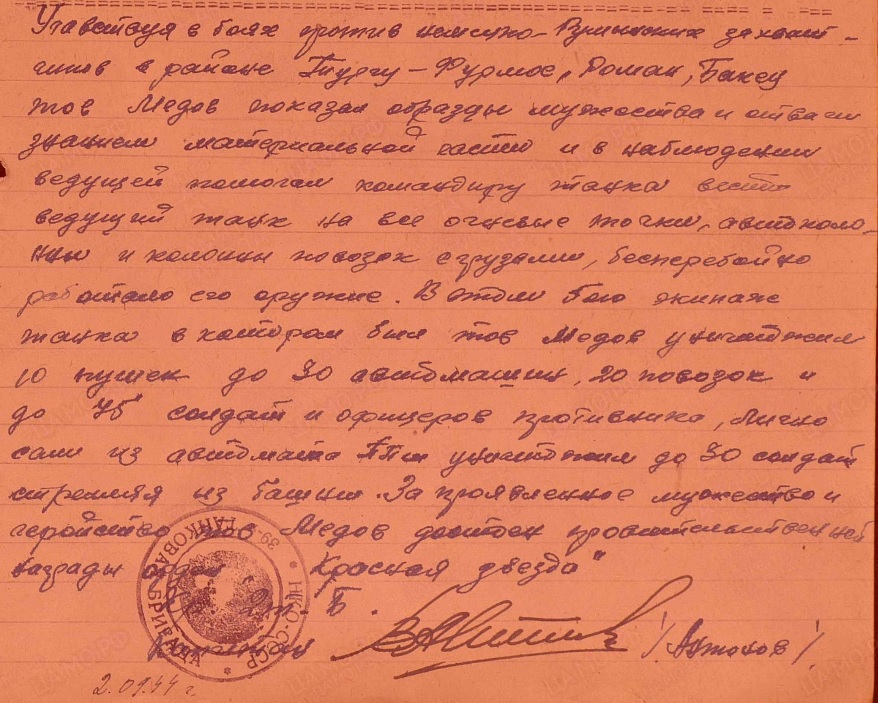 Участвуя в боях против немецко-Румынских захват-
чиков в районе Тыргу-Фрумос, Роман, Бакеу
тов Медов показал образцы мужества и отваги
знанием материальной части и в наблюдении
ведущей помогал командиру танка вести
ведущий танк на все огневые точки, автоколо-
нны и колонны повозок с грузами, бесперебойно
работало его оружие. В этом бою экипаж
танка в котором был тов Медов уничтожил
10 пушек до 30 автомашин, 20 повозок и
до 75 солдат и офицеров противника, Лично
сам из автомата ППш уничтожил до 30 солдат
стреляя из башни. За проявленное мужество и
геройство тов Медов достоен правительственной
награды орден "Красная звезда"
2 т. Б.
Капитан /Антонов/
2.09.44 г.
39-Я ТАНКОВАЯ БРИГАДА * НКО-СССР *